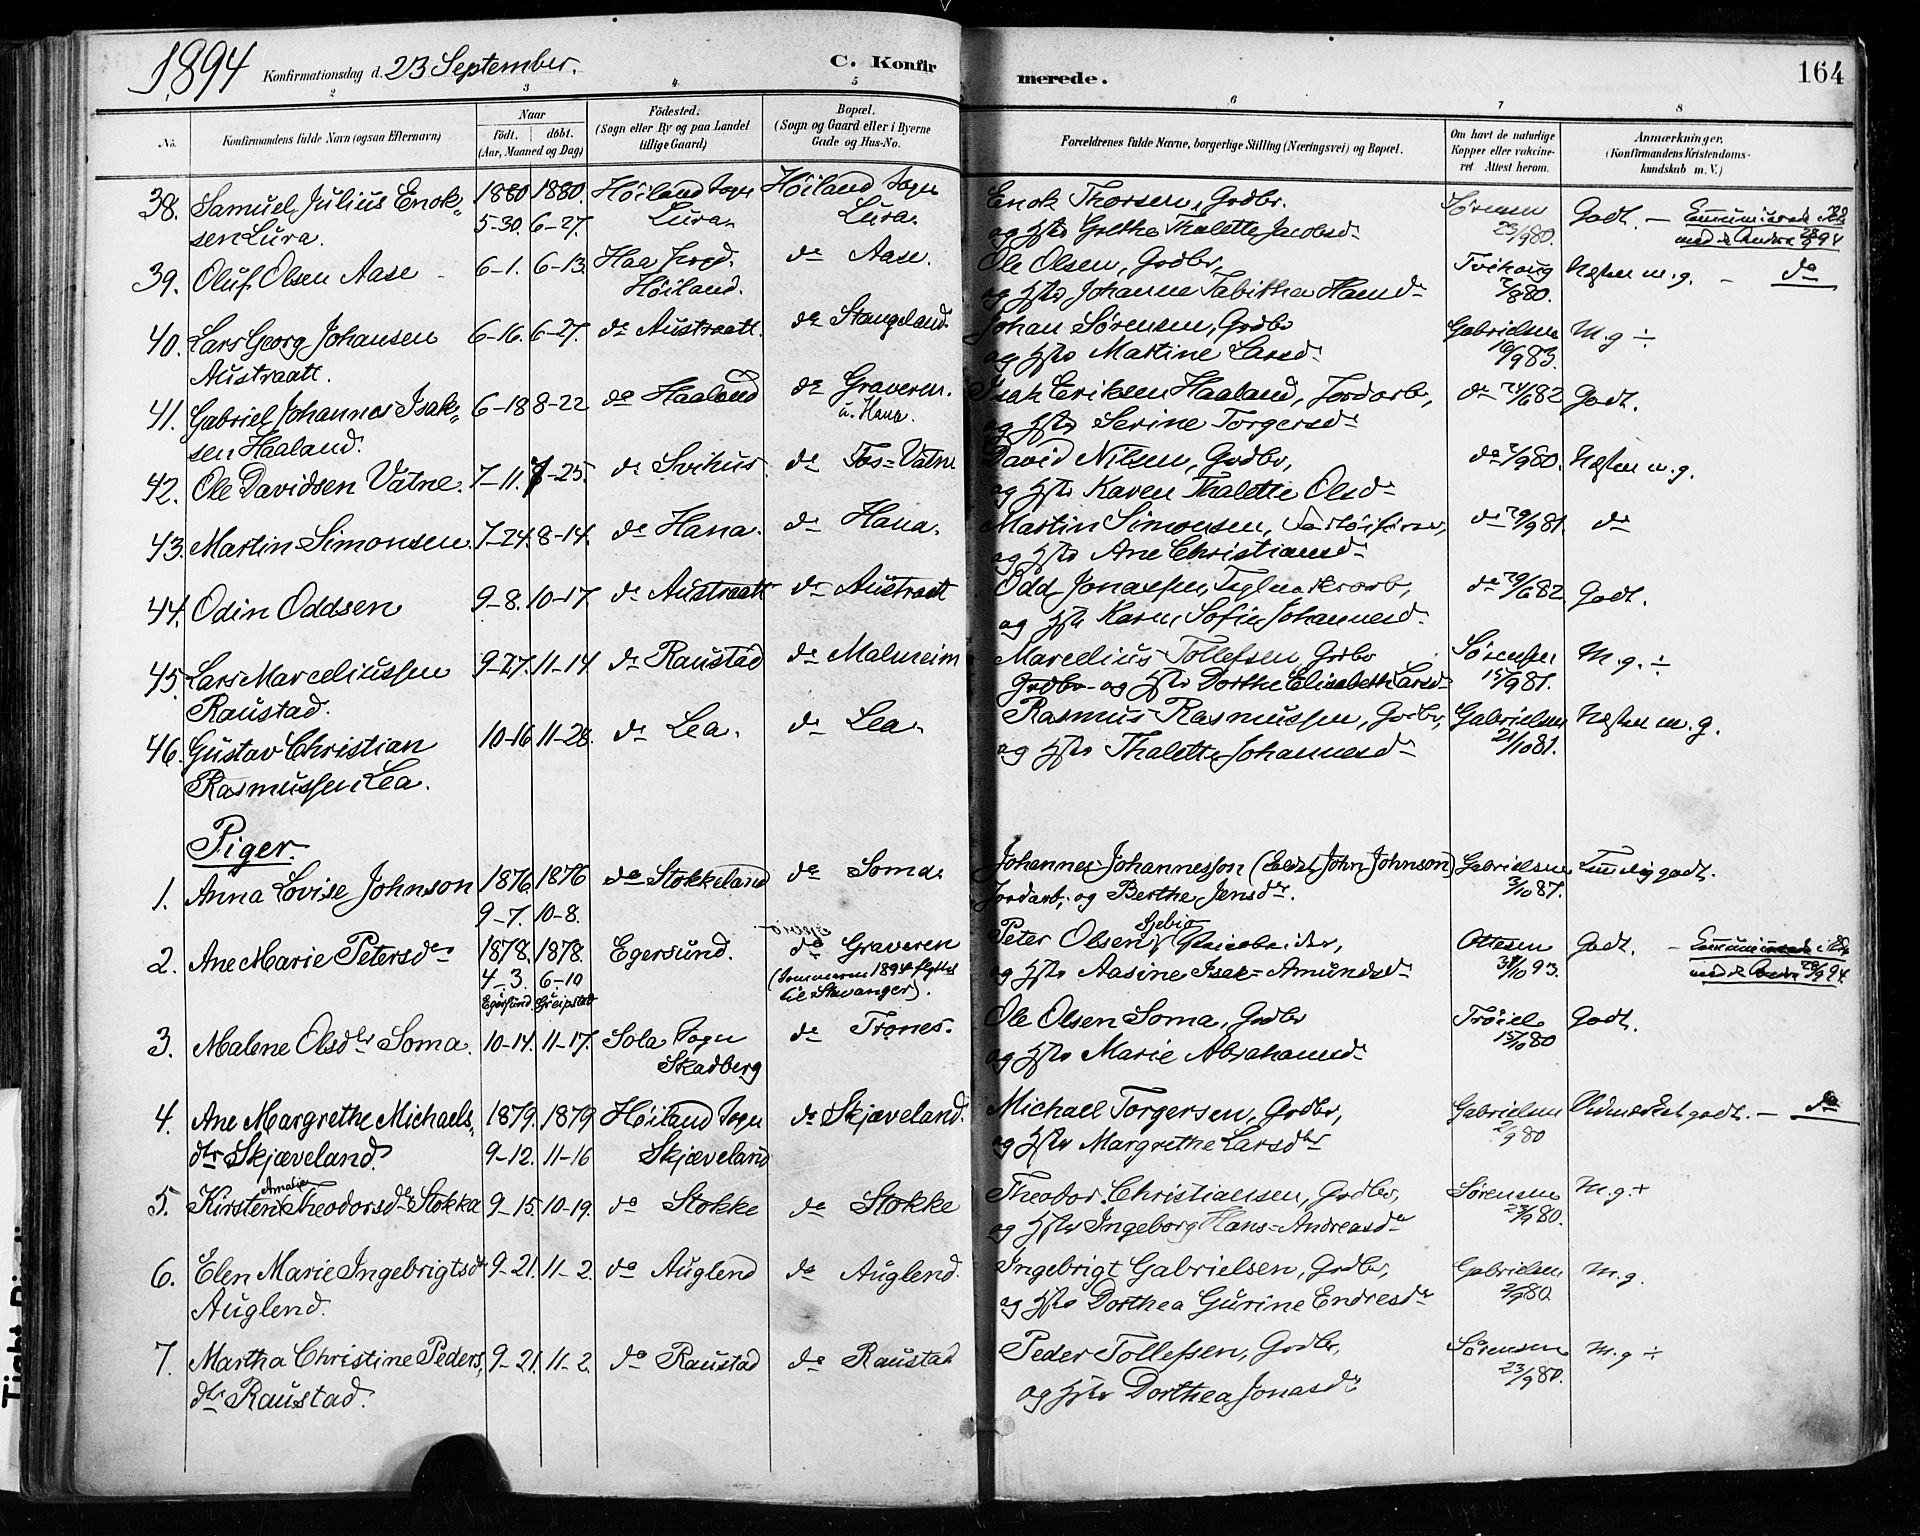 1894 Konfirmationsdag d. 23 September. C. Konfirmerede. 164
2 3 4 5 6 7 8
No. Konfirmandens fulde Navn (ogsaa Efternavn) Naar födt. döbt. (Aar, Maaned og Dag) Födested. (Sogn eller By og paa Landet tillige Gaard) Bopæl. (Sogn og Gaard eller i Byerne Gade og Hus-No. Forældrenes fulde Navne, borgerlige Stilling (Næringsvei) og Bopæl. Om havt de naturlige Kopper eller vakcineret Attest herom. Anmærkninger. (Konfirmandens Kristendomskundskab m. V.)
38. Samuel Julius Enok- 1880 1880. Höiland Sogn Höiland Sogn Enok Thorsen, Grdbr. Sørensen Godt. –
sen Lura. 5-30. 6-27. Lura. Lura. og Hstr Thalette Jacobsd. 23/9 80.
39. Oluf Olsen Aase 6-1. 6-13. Haa Höiland. do Aase. Ole Olsen, Grdbr, Næsten m.g. – do
og Hstr Johanne Tabitha 80.
40. Lars Georg Johansen 6-16. 6-27. do Austraatt. do Stangeland. Johan Sørensen, Grdbr Gabrielsen M.g ÷
Austraatt. og Hstr Martine Larsd. 16/9 83.
41. Gabriel Johannes Isak- 6-18 8-22 do Haaland do Graveren Isak Eriksen Haaland, Jordarb, do 24/6 82 Godt.
sen Haaland. u. Hana. og Hstr Serine Torgersd.
42. Ole Davidsen Vatne. 7-11. 7-25. do Svihus. do Fos=Vatne David Nilsen, Grdbr, do 2/9 80. Næsten m.g.
og Hstr Karen Thalette Olsd.
43. Martin Simonsen. 7-24. 8-14. do Hana. do Hana. Martin Simonsen, do 29/9 81. do
og Hstr Ane Christiansd.
44. Odin Oddsen 9-8. 10-17. do Austraatt do Austraatt Odd Jonassen, Teglværksarb, do 29/6 82. Godt.
og Hstr Karen Sofie Johannesd.
45. Lars Marceliussen 9-27. 11-14. do Raustad do Malmeim Marcelius Tollefsen Grdbr Sørensen M.g. ÷
Raustad. Grdbr og Hstr Dorthe Elisabeth Larsd. 15/9 81.
46. Gustav Christian 10-16. 11-28. do Lea. do Lea. Rasmus Rasmussen, Grdbr, Gabrielsen Næsten m.g.
Rasmussen Lea. og Hstr Thalette Johannesd. 21/10 81.
Piger.
1. Anna Lovise Johnson 1876. 1876 do Stokkeland do Soma. Johannes Johannesson (kaldt John Johnson) Gabrielsen Temmelig godt.
9-7. 10-8. Jordarb, og Berthe Jensdr. 3/10 87.
2. Ane Marie Petersd. 1878. 1878. Egersund. do Graveren Peter Olsen Ottesen Godt. –
4-3. 6-10 (Sommeren 1894 flyttet og Hstr Aasine Isak=Amundsd. 93.
Egersund. til Stavanger).
3. Malene Olsdtr Soma. 10-14. 11-17. Sola Sogn do Trones. Ole Olsen Soma, Grdbr Godt.
Skadberg og Hstr Marie Abrahamsd. 15/10 80
4. Ane Margrethe Michaels- 1879. 1879. Höiland Sogn do Skjæveland. Michael Torgersen, Grdbr, Gabrielsen Udmærket godt. – do
dtr Skjæveland. 9-12. 11-16 Skjæveland og Hstr Margrethe Larsdtr 2/9 80
5. Kirsten Amalie Theodorsd. Stokka 9-15. 10-19. do Stokke do Stokke Theodor Christiansen, Grdbr, Sørensen M.g.+
og Hstr Ingeborg Hans=Andreasd. 23/9 80.
6. Elen Marie Ingebrigtsd. 9-21. 11-2. do Auglend do Auglend. Ingebrigt Gabrielsen, Grdbr, Gabrielsen M.g.
Auglend. og Hstr Dorthea Gurine Endresd. 2/9 80.
7. Martha Christine Peders- 9-21. 11-2. do Raustad do Raustad Peder Tollefsen, Grdbr, Sørensen M.g ÷
dtr Raustad. og Hstr Dorthea Jonasd. 23/9 80.